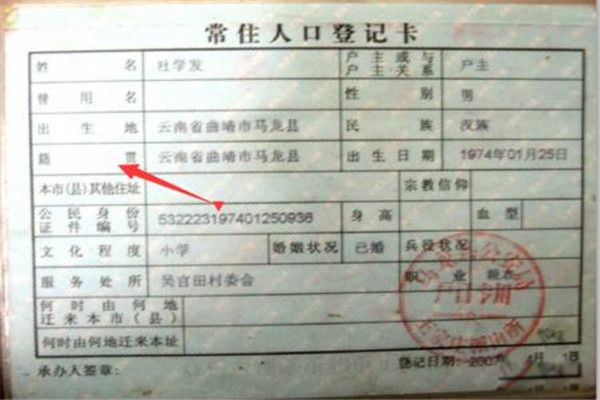 常住人口登记卡
姓名 杜学发 户主或与户主关系 户主
曾用名 性别 男
出生地 云南省曲靖市马龙县 民族 汉族
籍贯 云南省曲靖市马龙县 出生日期 1974年01月25日
本市(县)其他住址 宗教信仰
公民身份证件编号 532223197401250936 身高 血型
文化程度 小学 婚姻状况 已婚 兵役状况
服务处所 吴官田村委会 职业
何时由何地迁来本市(县)
何时由何地迁来本址
承办人签章: 登记日期: 4月1日
户口专用